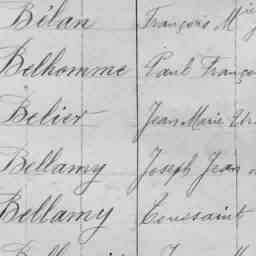 Bélan François M
Belhomme Paul Franço
Belier Jean Marie
Bellamy Joseph Jean
Bellamy Toussaint